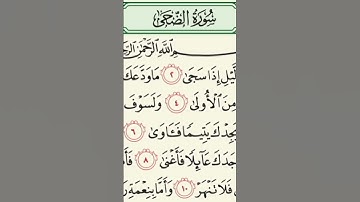 سُورَةُ الضُّحَىٰ
سِمِ ٱللَّهِ ٱلرَّحْمَٰنِ
لَّيْلِ إِذَا سَجَىٰ ٢ مَا وَدَّعَكَ
مِنَ ٱلْأُولَىٰ ٤ وَلَسَوْفَ
يَجِدْكَ يَتِيمًا فَـَٔاوَىٰ ٦
جَدَكَ عَآئِلًا فَأَغْنَىٰ ٨ فَأَ
فَلَا تَنْهَرْ ١٠ وَأَمَّا بِنِعْمَةِ